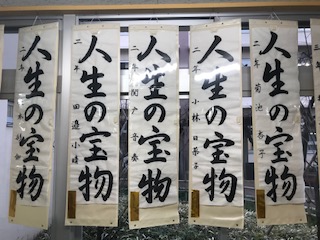 人生の宝物
二年 菊池
人生の宝物
二 小林日菜子
人生の宝物
二年 関戸音奏
人生の宝物
二 田邉小晴
人生の宝物
二